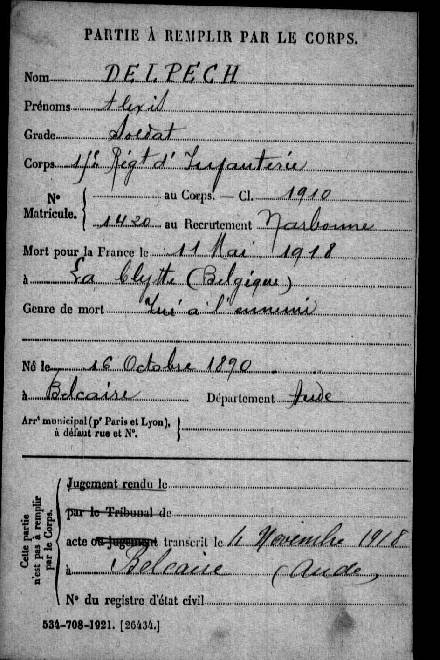 PARTIE À REMPLIR PAR LE CORPS.
Nom DELPECH
Prénoms Alexis
Grade Soldat
Corps Régt d'Infanterie
Nº Matricule. au Corps. — Cl. 1910
1420 au Recrutement Narbonne
Mort pour la France le 11 Mai 1918
à La Clytte (Belgique)
Genre de mort Tué à l'ennemi
Né le 16 Octobre 1890
à Belcaire Département Aude
Arrt municipal (pr Paris et Lyon), à défaut rue et Nº.
Cette partie n'est pas à remplir par le Corps.
Jugement rendu le
par le Tribunal de
acte ou jugement transcrit le 4 Novembre 1918
à Belcaire (Aude)
Nº du registre d'état civil
534-708-1921. [26434.]